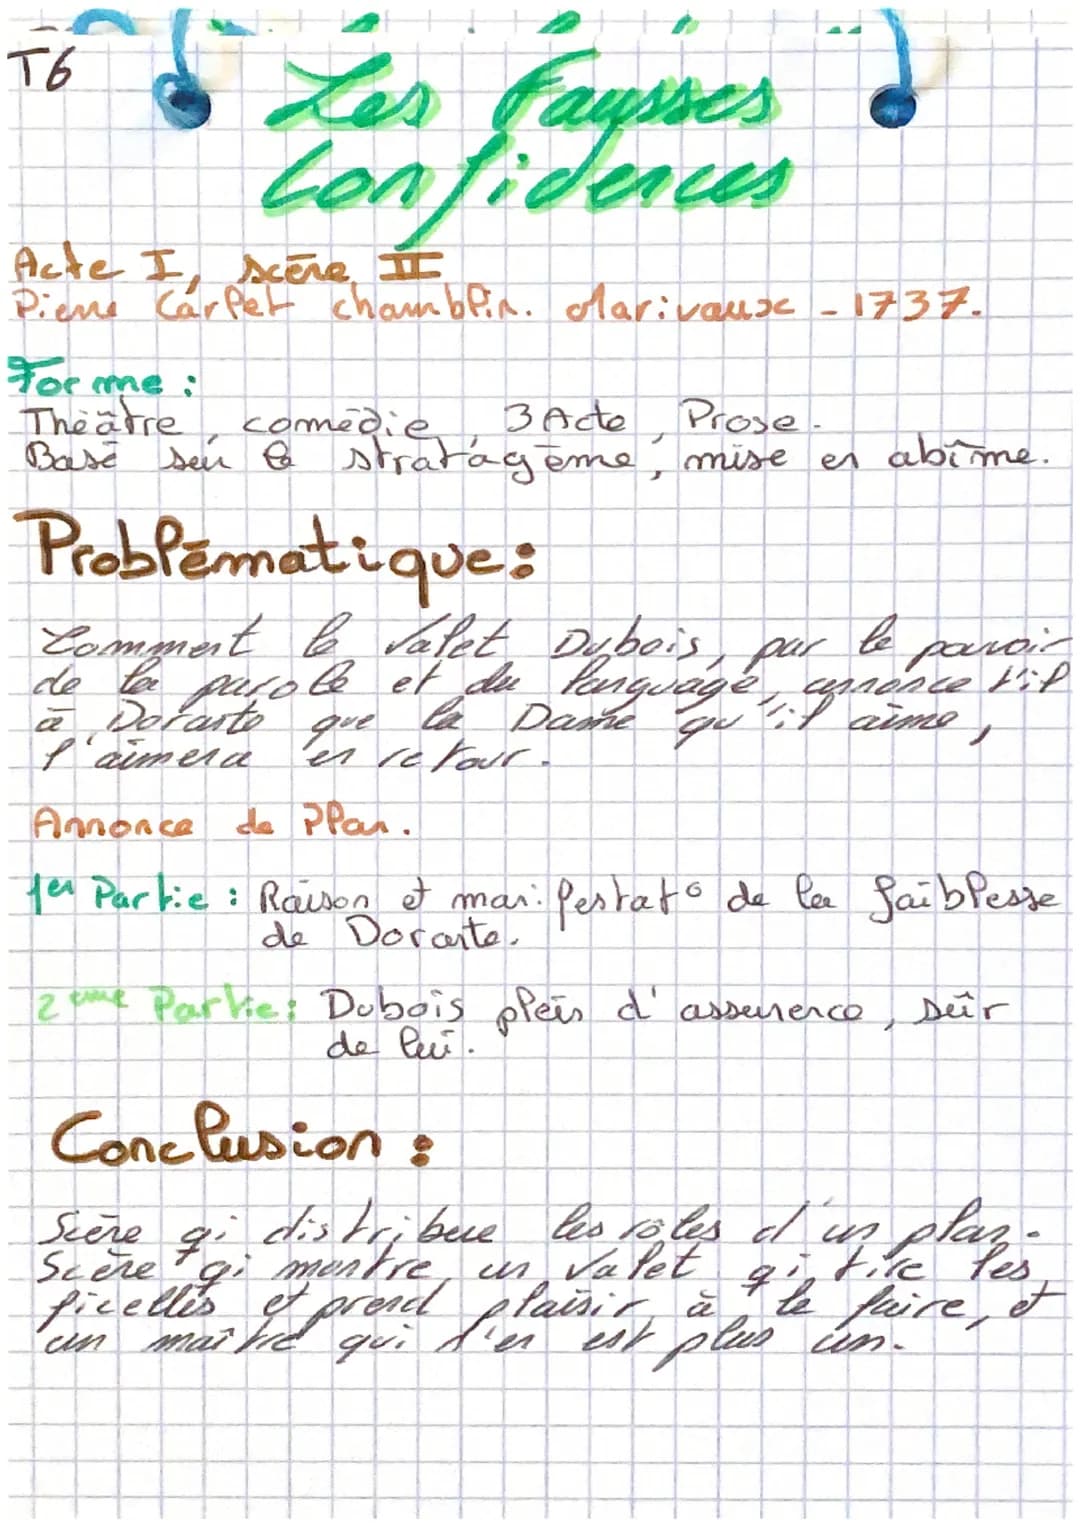 T6
Les Fausses
Confidences
Acte I, scène II
Pierre Carlet chamblin. Marivaux - 1737.
Forme :
Théâtre, comédie, 3 Acte, Prose.
Basé sur le stratagème, mise en abîme.
Problématique :
Comment le valet Dubois, par le pouvoir
de la parole et du language, annonce t'il
à Dorante que la Dame qu'il aime,
l'aimera en retour.
Annonce de Plan.
1er Partie : Raison et manifestat° de la faiblesse
de Dorante.
2eme Partie : Dubois plein d'assurence, sûr
de lui.
Conclusion :
Scène qi distribue les rôles d'un plan.
Scène qi montre un valet qi tire les
ficelles et prend plaisir à le faire, et
un maître qui n'en est plus un.